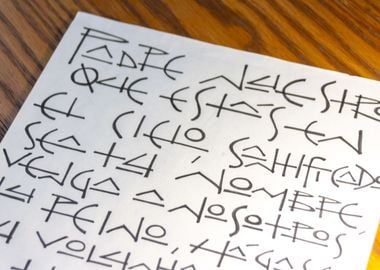 PADRE NUESTRO
QUE ESTÁS EN
EL CIELO, SANTIFICADO
SEA TU NOMBRE
VENGA A NOSOTROS
TU REINO, HÁGASE
VOLUNTAD